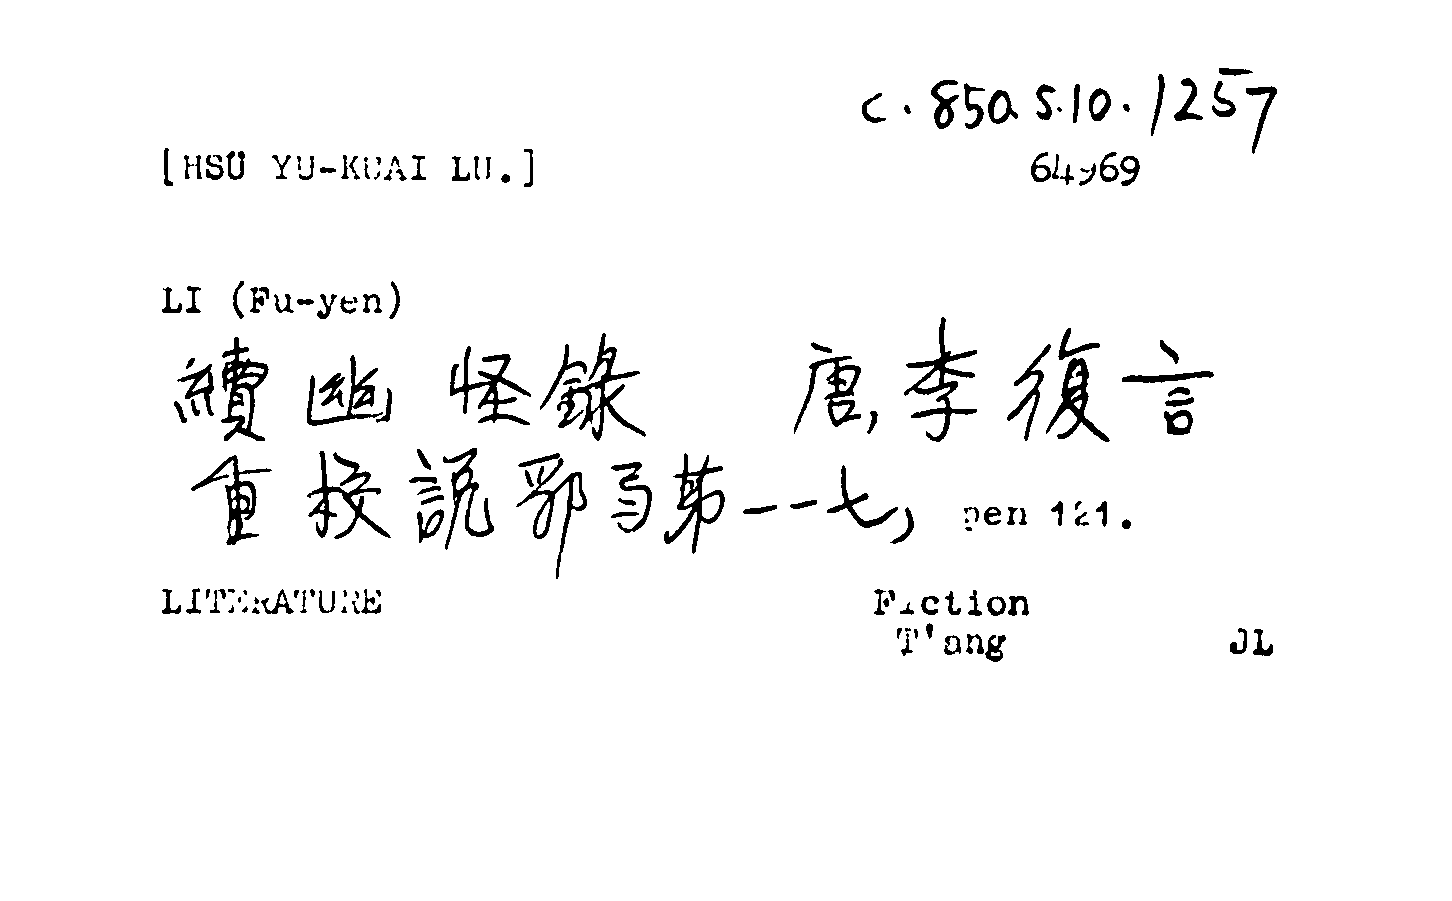 c.850a s.10.1257
[HSÜ YU-KUAI LU.] 64969
LI (Fu-yen)
續幽怪錄 唐,李復言
重校説郛弓第一一七, pen 121.
LITERATURE Fiction
T'ang JL